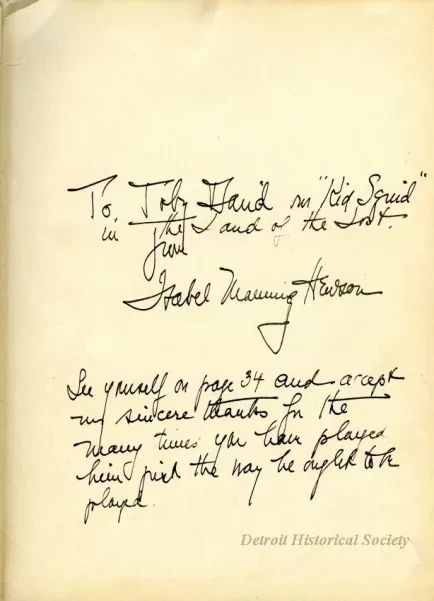 To Toby David our "Kid Squid"
in The Land of the Lost.
from
Isabel Manning Hewson
See yourself on page 34 and accept
my sincere thanks for the
many times you have played
him just the way he ought to be
played.
Detroit Historical Society